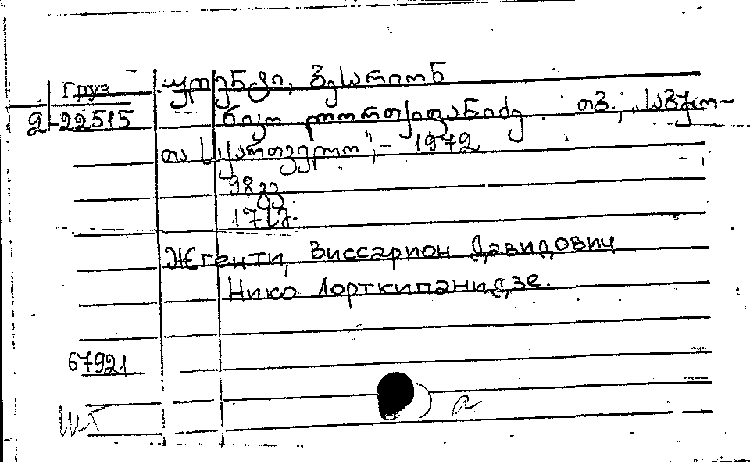 Груз
2-22515
ჟღენტი, ბესარიონ
ნიკო ლორთქიფანიძე. თბ., „საბჭო-
თა საქართველო", - 1972
98 გვ.
Жгенти, Виссарион Давидович
Нико Лорткипанидзе.
67921